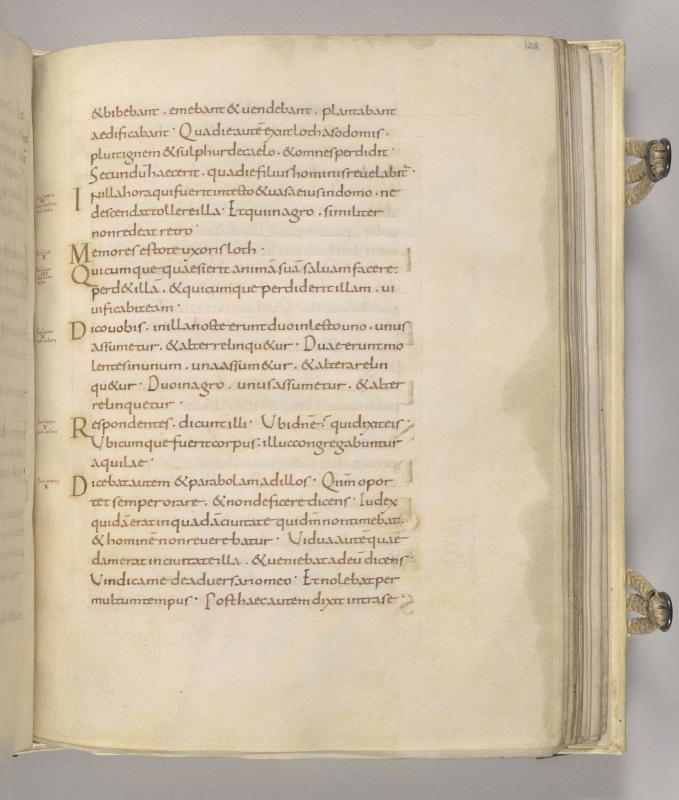 128
&bibebant . emebant & uendebant . plantabant
aedificabant · Qua die autē exiit loth a sodomis ·
pluit ignem & sulphur de caelo . & omnes perdidit ·
Secundū haec erit . qua die filius hominis reuelabit̄ ·
Inilla hora qui fuerit in tecto & uasa eius in domo . ne
descendat tollere illa · Et qui in agro . similiter
non redeat retro ·
Memores estote uxoris loth ·
Quicumque quaesierit animā suā saluam facere .
perd& illā . & quicumque perdiderit illam . ui
uificabit eam ·
Dico uobis . in illa nocte erunt duo in lecto uno . unus
assumetur . & alter relinqu&ur · Duae erunt mo
lentes in unum . una assum&ur . & altera relin
qu&ur · Duo in agro . unus assumetur . & alter
relinquetur .
Respondentes . dicunt illi · Ubi dn̄e · qui dixit eis ·
Ubicumque fuerit corpus : illuc congregabuntur
aquilae ·
Dicebat autem & parabolam ad illos · Qm̄ opor
tet semper orare . & non deficere dicens · Iudex
quidā erat in quadā ciuitate qui dm̄ non timebat .
& hominē non reuerebatur · Uidua autē quae
dam erat in ciuitate illa . & ueniebat ad eū dicens ·
Uindica me de aduersario meo · Et nolebat per
multum tempus · Post haec autem dixit intra se ·